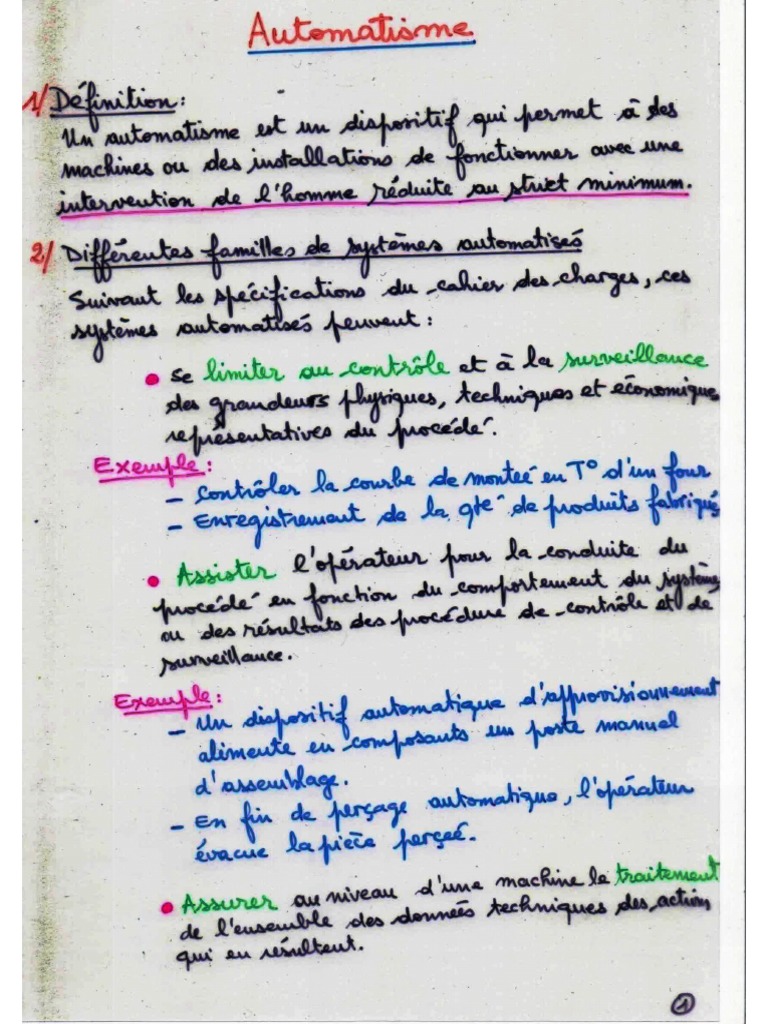 Automatisme
1/ Définition:
Un automatisme est un dispositif qui permet à des
machines ou des installations de fonctionner avec une
intervention de l'homme réduite au strict minimum.
2/ Différentes familles de systèmes automatisés
Suivant les spécifications du cahier des charges, ces
systèmes automatisés peuvent:
• Se limiter au contrôle et à la surveillance
des grandeurs physiques, techniques et économique
représentatives du procédé.
Exemple:
- Contrôler la courbe de montée en T° d'un four
- Enregistrement de la qté de produits fabriqués
• Assister l'opérateur pour la conduite du
procédé en fonction du comportement du système
ou des résultats des procédure de contrôle et de
surveillance.
Exemple:
- Un dispositif automatique d'approvisionnement
alimente en composants un poste manuel
d'assemblage.
- En fin de perçage automatique, l'opérateur
évacue la pièce perçée.
• Assurer au niveau d'une machine le traitement
de l'ensemble des données techniques des action
qui en résultent.
1